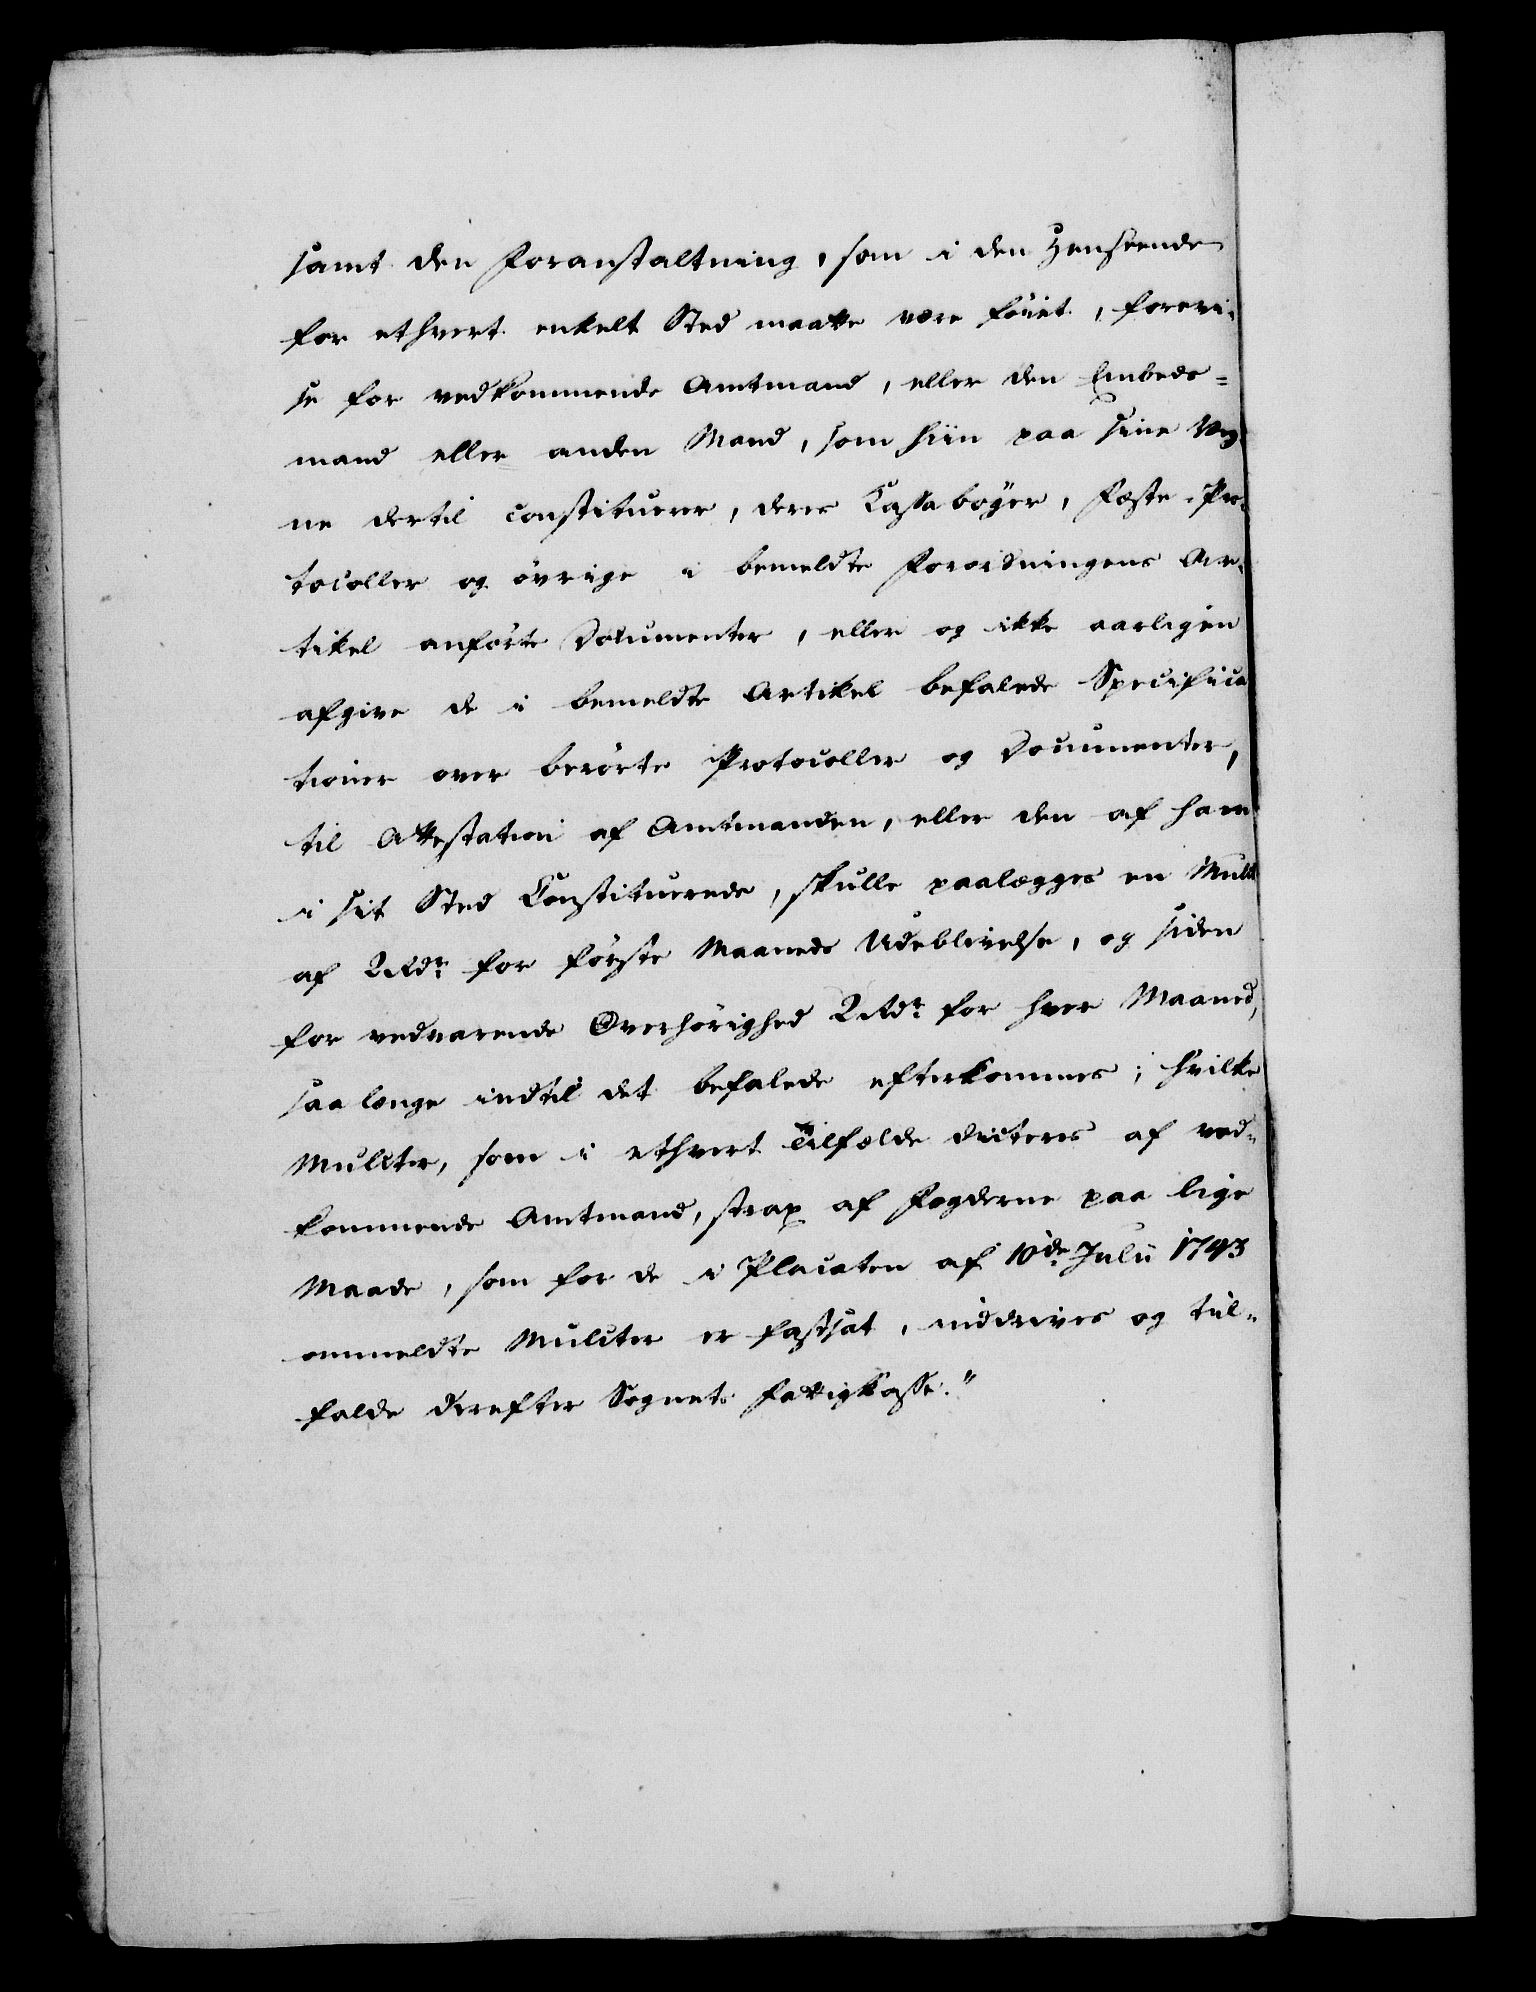 samt den Foranstaltning, som i den Henseende
for ethvert enkelt Sted maatte være föiet, forevi-
se for vedkommende Amtmand, eller den Embeds=
mand eller anden Mand, som hiin paa sine Veg-
ne dertil constituerer, deres Cassabøger, Fæste-Pro-
tocoller og övrige i bemeldte Forordningens Ar-
tikel anførte Documenter, eller og ikke aarligen
afgive de i bemeldte Artikel befalede Specifica
tioner over berörte Protocoller og Documenter,
til Attestation af Amtmanden, eller den af ham
i sit Sted Constituerede, skulle paalægges en Mulct
af 2 Rdr. for förste Maaneds Udeblivelse, og siden
for vedvarende Overhörighed 2 Rdr. for hver Maaned,
saa længe indtil det befalede efterkommes; hvilke
Mulcter, som i ethvert Tilfælde dicteres af ved-
kommende Amtmand, strax af Fogderne paa lige
Maade, som for de i Placaten af 10de Julii 1793
ommeldte Mulcter er fastsat, inddrives og til-
falde derefter Sognets Fattigkasse."